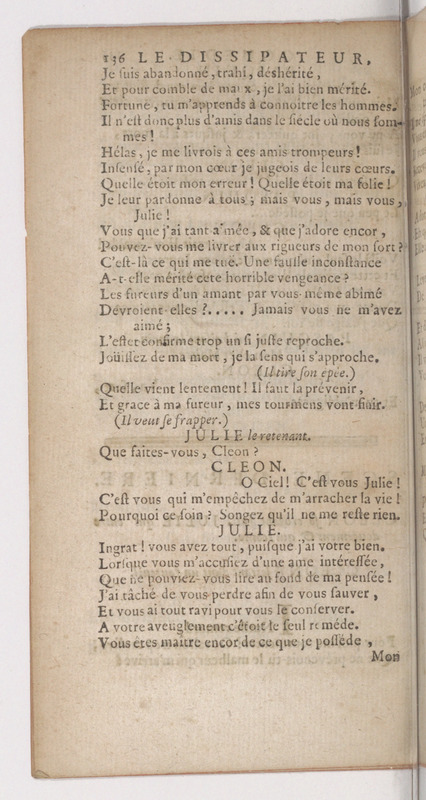 136 LE DISSIPATEUR,
Je suis abandonné, trahi, déshérité,
Et pour comble de maux, je l'ai bien mérité.
Fortune, tu m'apprends à connoître les hommes.
Il n'est donc plus d'amis dans le siécle où nous som-
mes!
Hélas, je me livrois à ces amis trompeurs!
Insensé, par mon cœur je jugeois de leurs cœurs.
Quelle étoit mon erreur! Quelle étoit ma folie!
Je leur pardonne à tous; mais vous, mais vous,
Julie!
Vous que j'ai tant aimée, & que j'adore encor,
Pouvez-vous me livrer aux rigueurs de mon sort?
C'est-là ce qui me tue. Une fausse inconstance
A-t-elle mérité cete horrible vengeance?
Les fureurs d'un amant par vous-même abimé
Devroient-elles?..... Jamais vous ne m'avez
aimé;
L'effet confirme trop un si juste reproche.
Joüissez de ma mort, je la sens qui s'approche.
(Il tire son épée.)
Qu'elle vient lentement! Il faut la prévenir,
Et grace à ma fureur, mes tourmens vont finir.
(Il veut se frapper.)
JULIE le retenant.
Que faites-vous, Cleon?
CLEON.
O Ciel! C'est vous Julie!
C'est vous qui m'empêchez de m'arracher la vie!
Pourquoi ce soin? Songez qu'il ne me reste rien.
JULIE.
Ingrat! vous avez tout, puisque j'ai votre bien.
Lorsque vous m'accusiez d'une ame intéressée,
Que ne pouviez-vous lire au fond de ma pensée!
J'ai tâché de vous perdre afin de vous sauver,
Et vous ai tout ravi pour vous le conserver.
A votre aveuglement c'étoit le seul reméde.
Vous êtes maitre encor de ce que je possède,
Mon